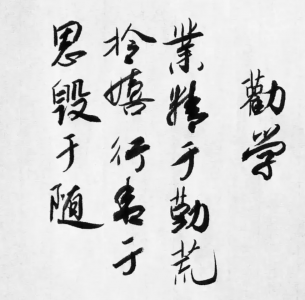 勸学
業精于勤荒
於嬉行成于
思毁于随